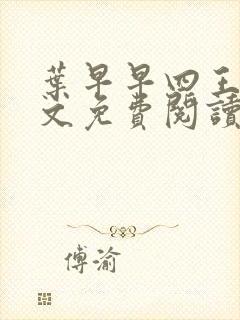 葉早早四王
文免費閱讀
傅渝